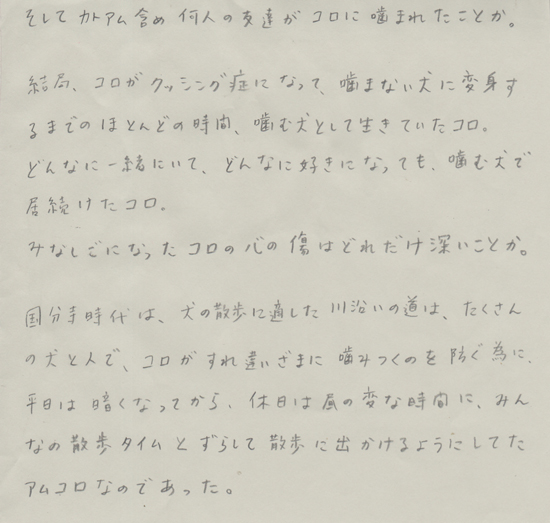 そしてカトアム含め何人の友達がコロに噛まれたことか。
結局、コロがクッシング症になって、噛まない犬に変身す
るまでのほとんどの時間、噛む犬として生きていたコロ。
どんなに一緒にいて、どんなに好きになっても、噛む犬で
居続けたコロ。
みなしごになったコロの心の傷はどれだけ深いことか。
国分寺時代は、犬の散歩に適した川沿いの道は、たくさん
の犬と人で、コロがすれ違いざまに噛みつくのを防ぐ為に、
平日は暗くなってから、休日は昼の変な時間に、みん
なの散歩タイムとずらして散歩に出かけるようにしてた
アムコロなのであった。